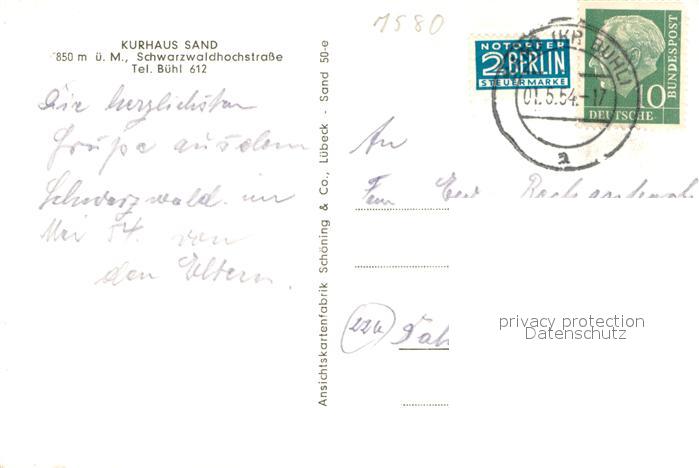 1580
KURHAUS SAND
850 m ü. M., Schwarzwaldhochstraße
Tel. Bühl 612
Die herzlichsten
Grüße aus dem
Schwarzwald im
Mai 54. von
den Eltern.
Ansichtskartenfabrik Schöning & Co., Lübeck - Sand 50-e
NOTOPFER
2 BERLIN
STEUERMARKE
(KR. BÜHL)
01.5.54.-17
a
10
DEUTSCHE
BUNDESPOST
An
(22a)
privacy protection
Datenschutz